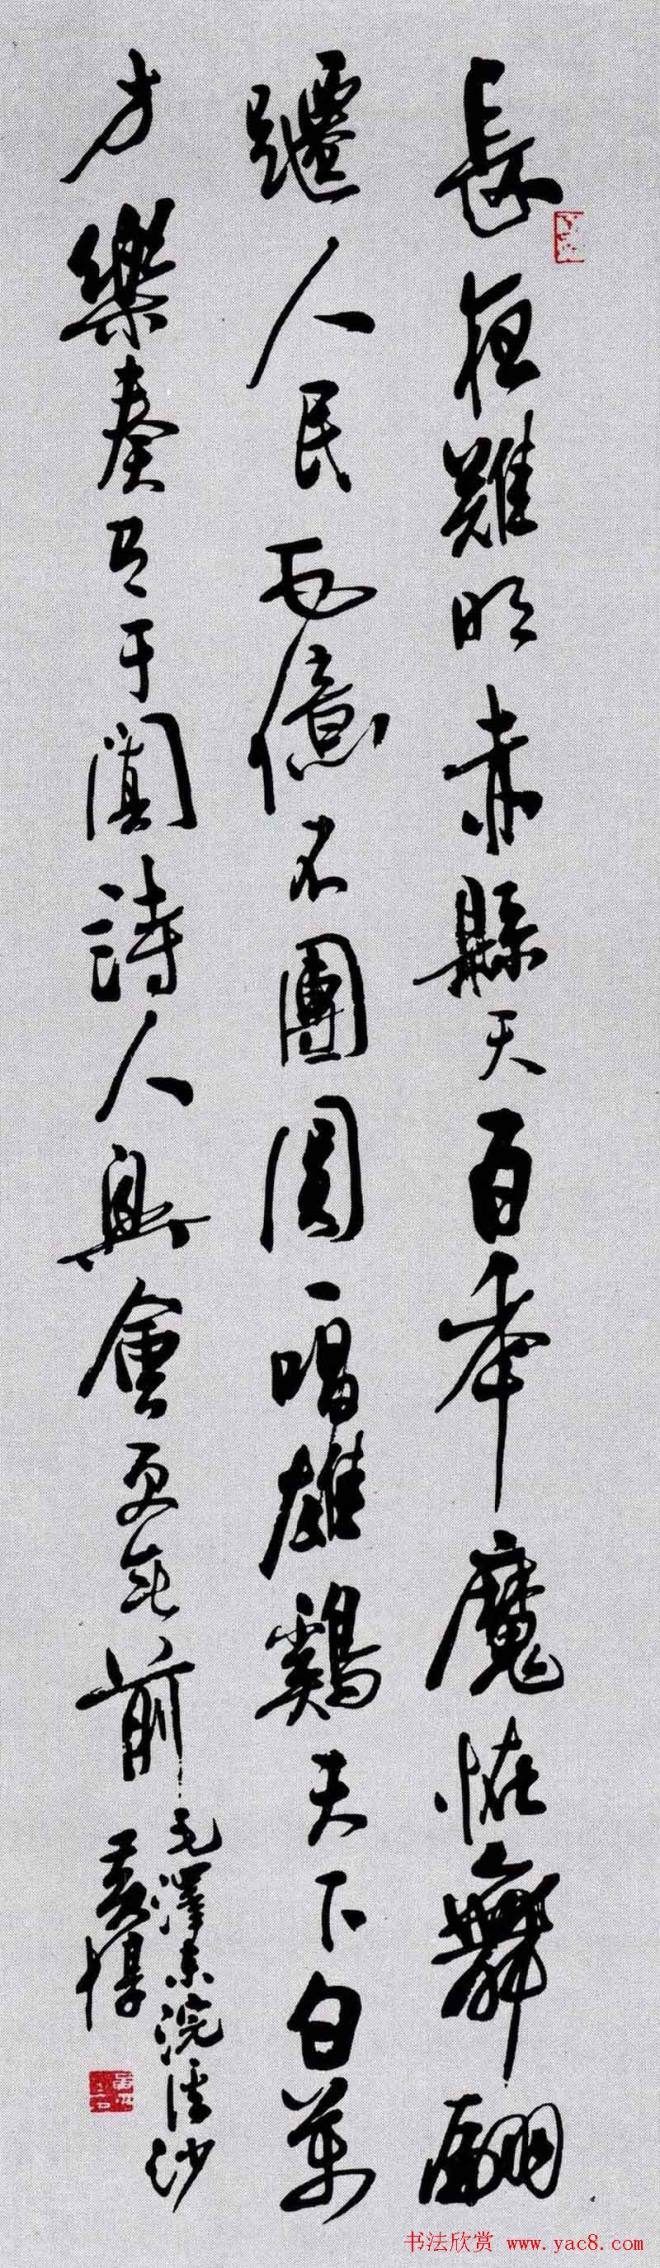 長夜難明赤縣天百年魔怪舞翩
躚人民五億不團圓一唱雄鷄天下白萬
方樂奏有于闐詩人興會更无前
毛澤東浣溪沙
黄惇
书法欣赏 www.yac8.com